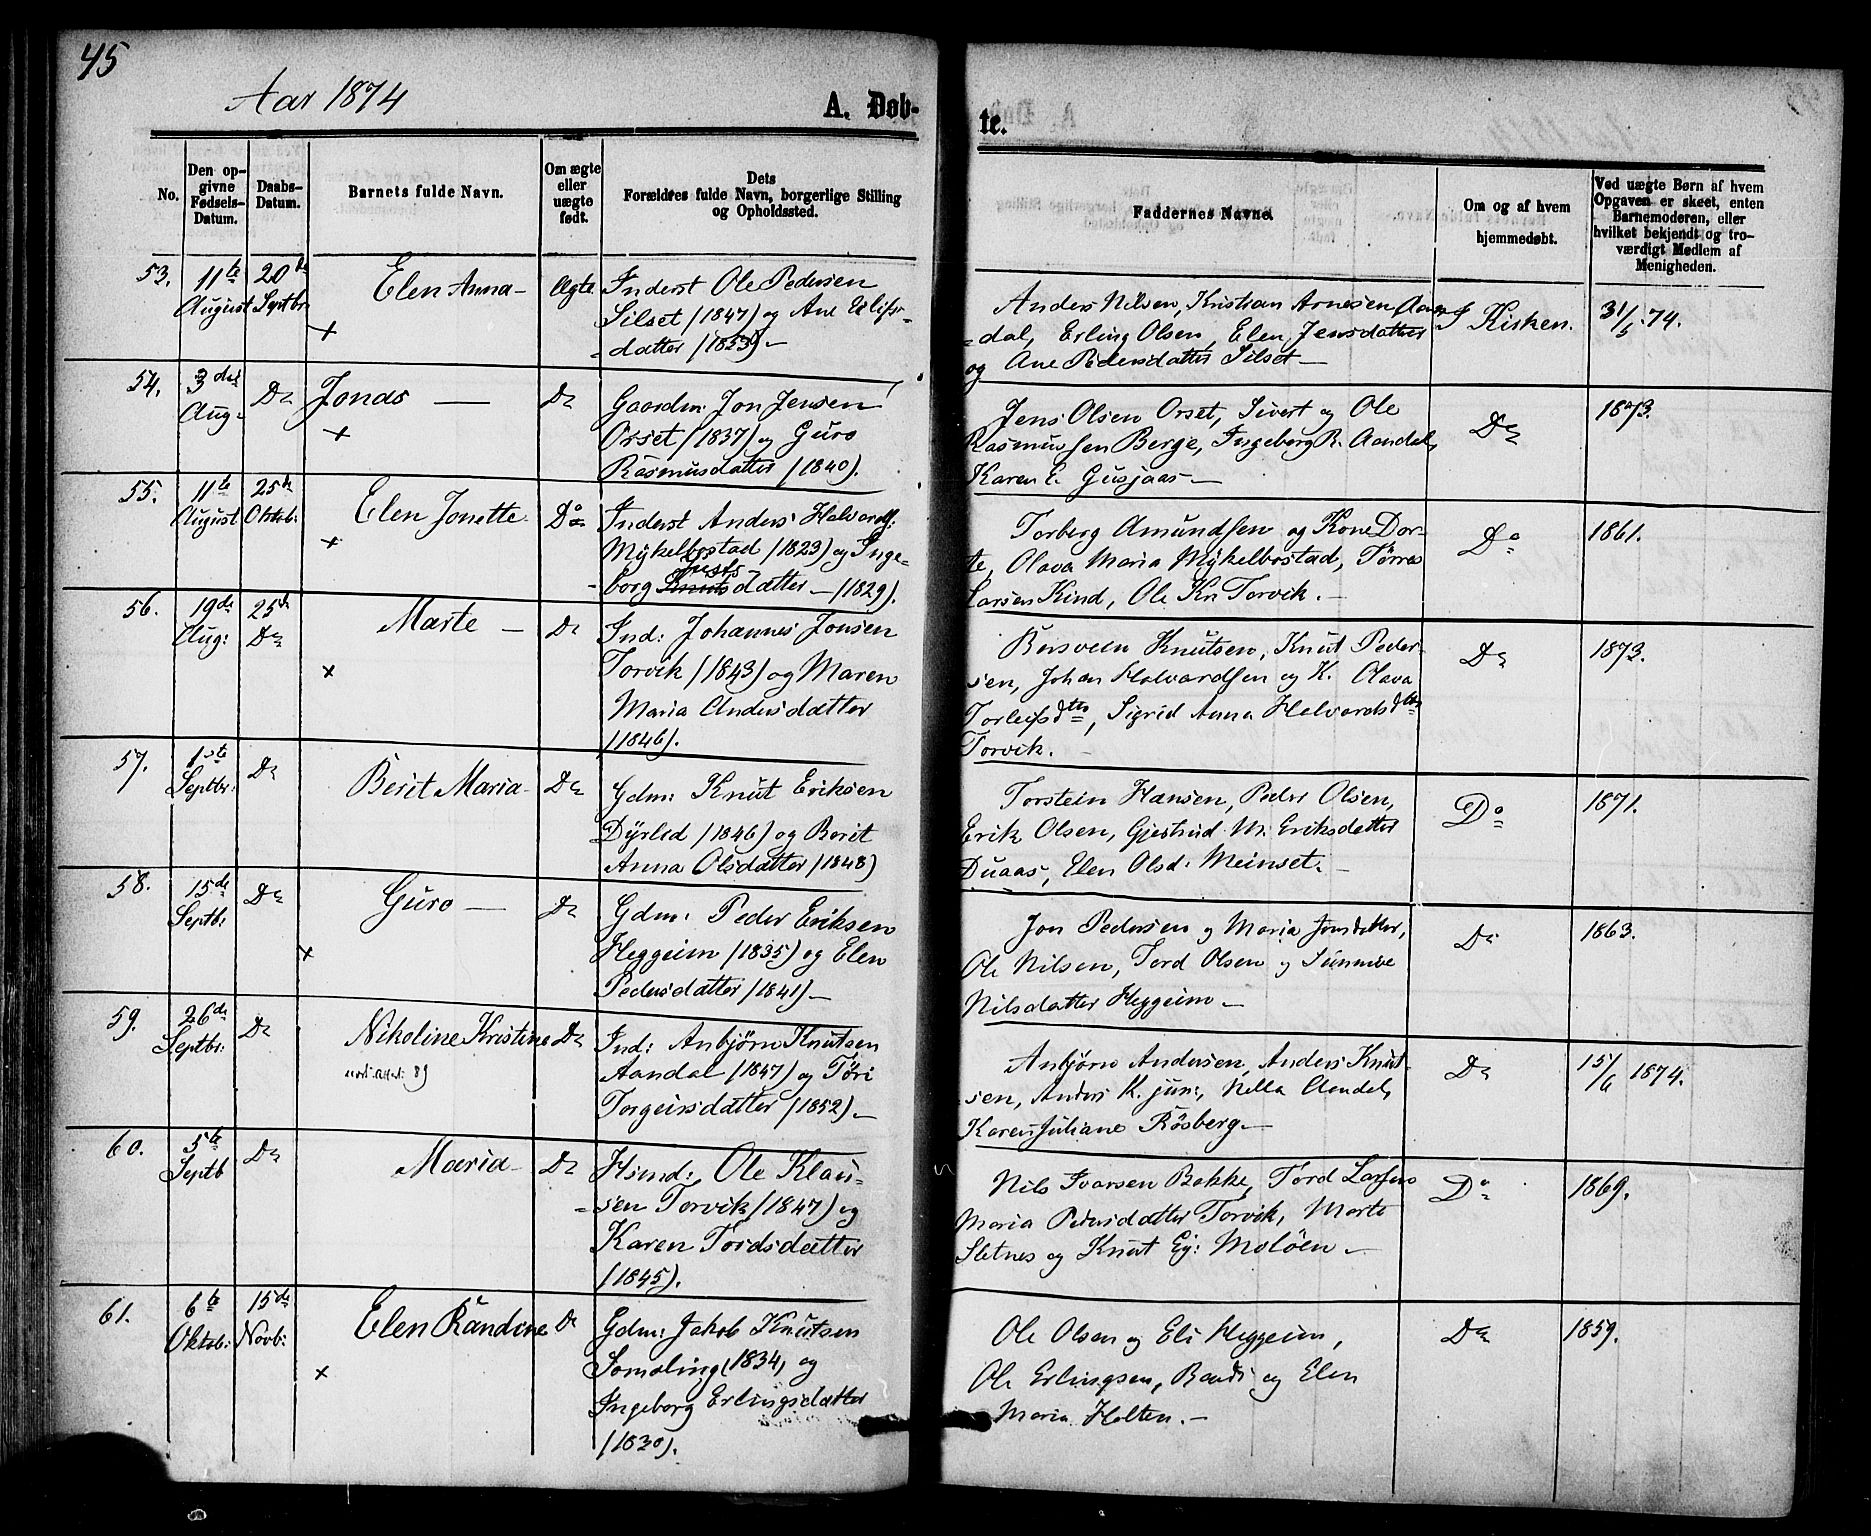 45
Aar 1874
A. Døb-
te.
No.
Den op-
givne
Fødsels-
Datum.
Daabs-
Datum.
Barnets fulde Navn.
Om ægte
eller
uægte
født.
Dets
Forældres fulde Navn, borgerlige Stilling
og Opholdssted.
Faddernes Navne.
Om og af hvem
hjemmedøbt.
Ved uægte Børn af hvem
Opgaven er skeet, enten
Barnemoderen, eller
hvilket bekjendt og tro-
værdigt Medlem af
Menigheden.
53.
11te
August
20de
Septbr:
Elen Anna —
+
Ægte
Inderst Ole Pedersen
Silset (1847) og Ane Eilifs-
-datter (1853) —
Anders Nilsen, Kristian Arnesen Aan-
-dal, Erling Olsen, Elen Jensdatter
og Ane Pedersdatter Silset —
I Kirken.
31/5 74.
54.
3die
Aug:
Do
Jonas —
+
Do
Gaardm: Jon Jensen
Orset (1837) og Guro
Rasmusdatter (1840).
Jens Olsen Orset, Sivert og Ole
Rasmussen Berge, Ingeborg R. Aandal,
Karen E. Gusjaas —
Do
1873.
55.
11te
August
25de
Oktob:
Elen Jonette
+
Do
Inderst Anders Halvards:
Myklebostad (1823) og Inge-
Justs
-borg Knutsdatter — (1829).
Torberg Amundsen og Kone Dor-
te, Olava Maria Myklebostad, Tørres
Larsen Kind, Ole Kn Torvik. —
Do
1861.
56.
19de
Aug:
25de
Do
Marte —
+
Do
Ind: Johannes Jonsen
Torvik (1843) og Maren
Maria Andersdatter
(1846).
Bersveen Knutsen, Knut Peder-
sen, Johan Halvardsen og K. Olava
Torleifsdtr, Sigrid Anna Halvardsdtr
Torvik. —
Do
1873.
57.
1ste
Septbr:
Do
Berit Maria —
Do
Gdm: Knut Eriksen
Dyrlid (1846) og Berit
Anna Olsdatter (1848)
Torstein Hansen, Peder Olsen,
Erik Olsen, Gjertrud M. Eriksdatter
Duaas, Elen Olsd: Meinset. —
Do
1871.
58.
15de
Septbr
Do
Guro —
+
Do
Gdm: Peder Eriksen
Heggeim (1835) og Elen
Pedersdatter (1841) —
Jon Pedersen og Maria Jonsdatter,
Ole Nilsen, Tord Olsen og Sünnive
Nilsdatter Heggeim —
Do
1863.
59.
26de
Septbr:
Do
Nikoline Kristine
89
Do
Ind: Anbjørn Knutsen
Aandal (1847) og Tøri
Torgeirsdatter (1852) —
Anbjørn Andersen, Anders Knut-
sen, Anders K. jun:, Nella Aandal,
Karen Juliane Rösberg —
Do
15/6 1874.
60.
5te
Septb
Do
Maria —
Do
Hsmd: Ole Klau-
-sen Torvik (1847) og
Karen Tordsdatter
(1845).
Nils Ivarsen Bakke, Tord Larsens
Maria Pedersdatter Torvik, Marte
Sletnes og Knut Ey: Molöen —
Do
1869.
61.
6te
Oktob:
15de
Novb:
Elen Randine
+
Do
Gdm: Jakob Knutsen
Somoling (1834) og
Ingeborg Erlingsdatter
(1830).
Ole Olsen og Eli Heggeim,
Ole Erlingsen, Randi og Elen
Maria Holten. —
Do
1859.